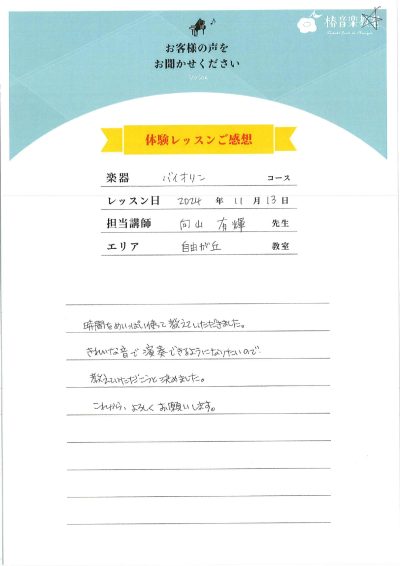 椿音楽教室
お客様の声を
お聞かせください
体験レッスンご感想
楽器 バイオリン コース
レッスン日 2024 年 11 月 13 日
担当講師 向山 有輝 先生
エリア 自由が丘 教室
時間をめいっぱい使って教えていただきました。
きれいな音で演奏できるようになりたいので
教えていただこうと決めました。
これから、よろしくお願いします。